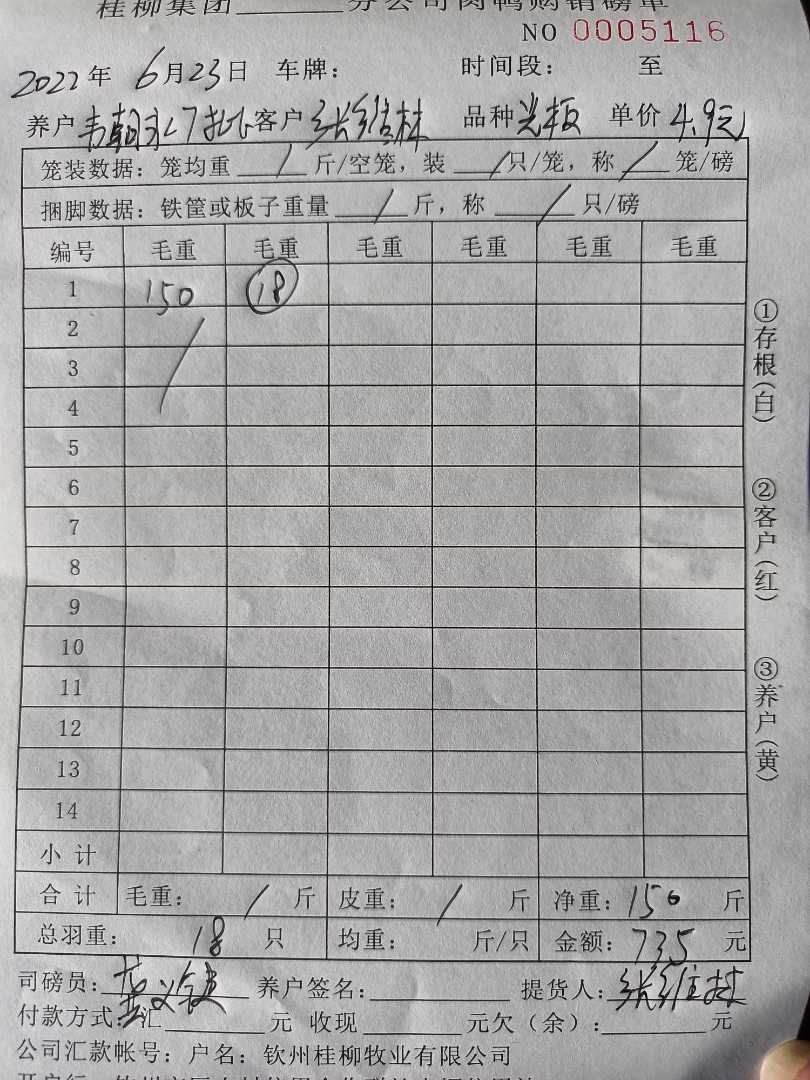 桂柳集团______分公司肉鸭购销磅单
NO 0005116
2022年 6月23日 车牌: 时间段: 至
养户 韦朝 客户 张维林 品种 光板 单价 4.9元
笼装数据: 笼均重 / 斤/空笼, 装 / 只/笼, 称 / 笼/磅
捆脚数据: 铁筐或板子重量 / 斤, 称 / 只/磅
编号 毛重 毛重 毛重 毛重 毛重 毛重
1 150 18
2 /
3
4
5
6
7
8
9
10
11
12
13
14
小计
合计 毛重: / 斤 皮重: / 斤 净重: 150 斤
总羽重: 18 只 均重: 斤/只 金额: 735 元
司磅员: 养户签名: 提货人: 张维林
付款方式: 汇______元 收现______元欠(余):______元
公司汇款帐号: 户名: 钦州桂柳牧业有限公司
①存根(白)
②客户(红)
③养户(黄)